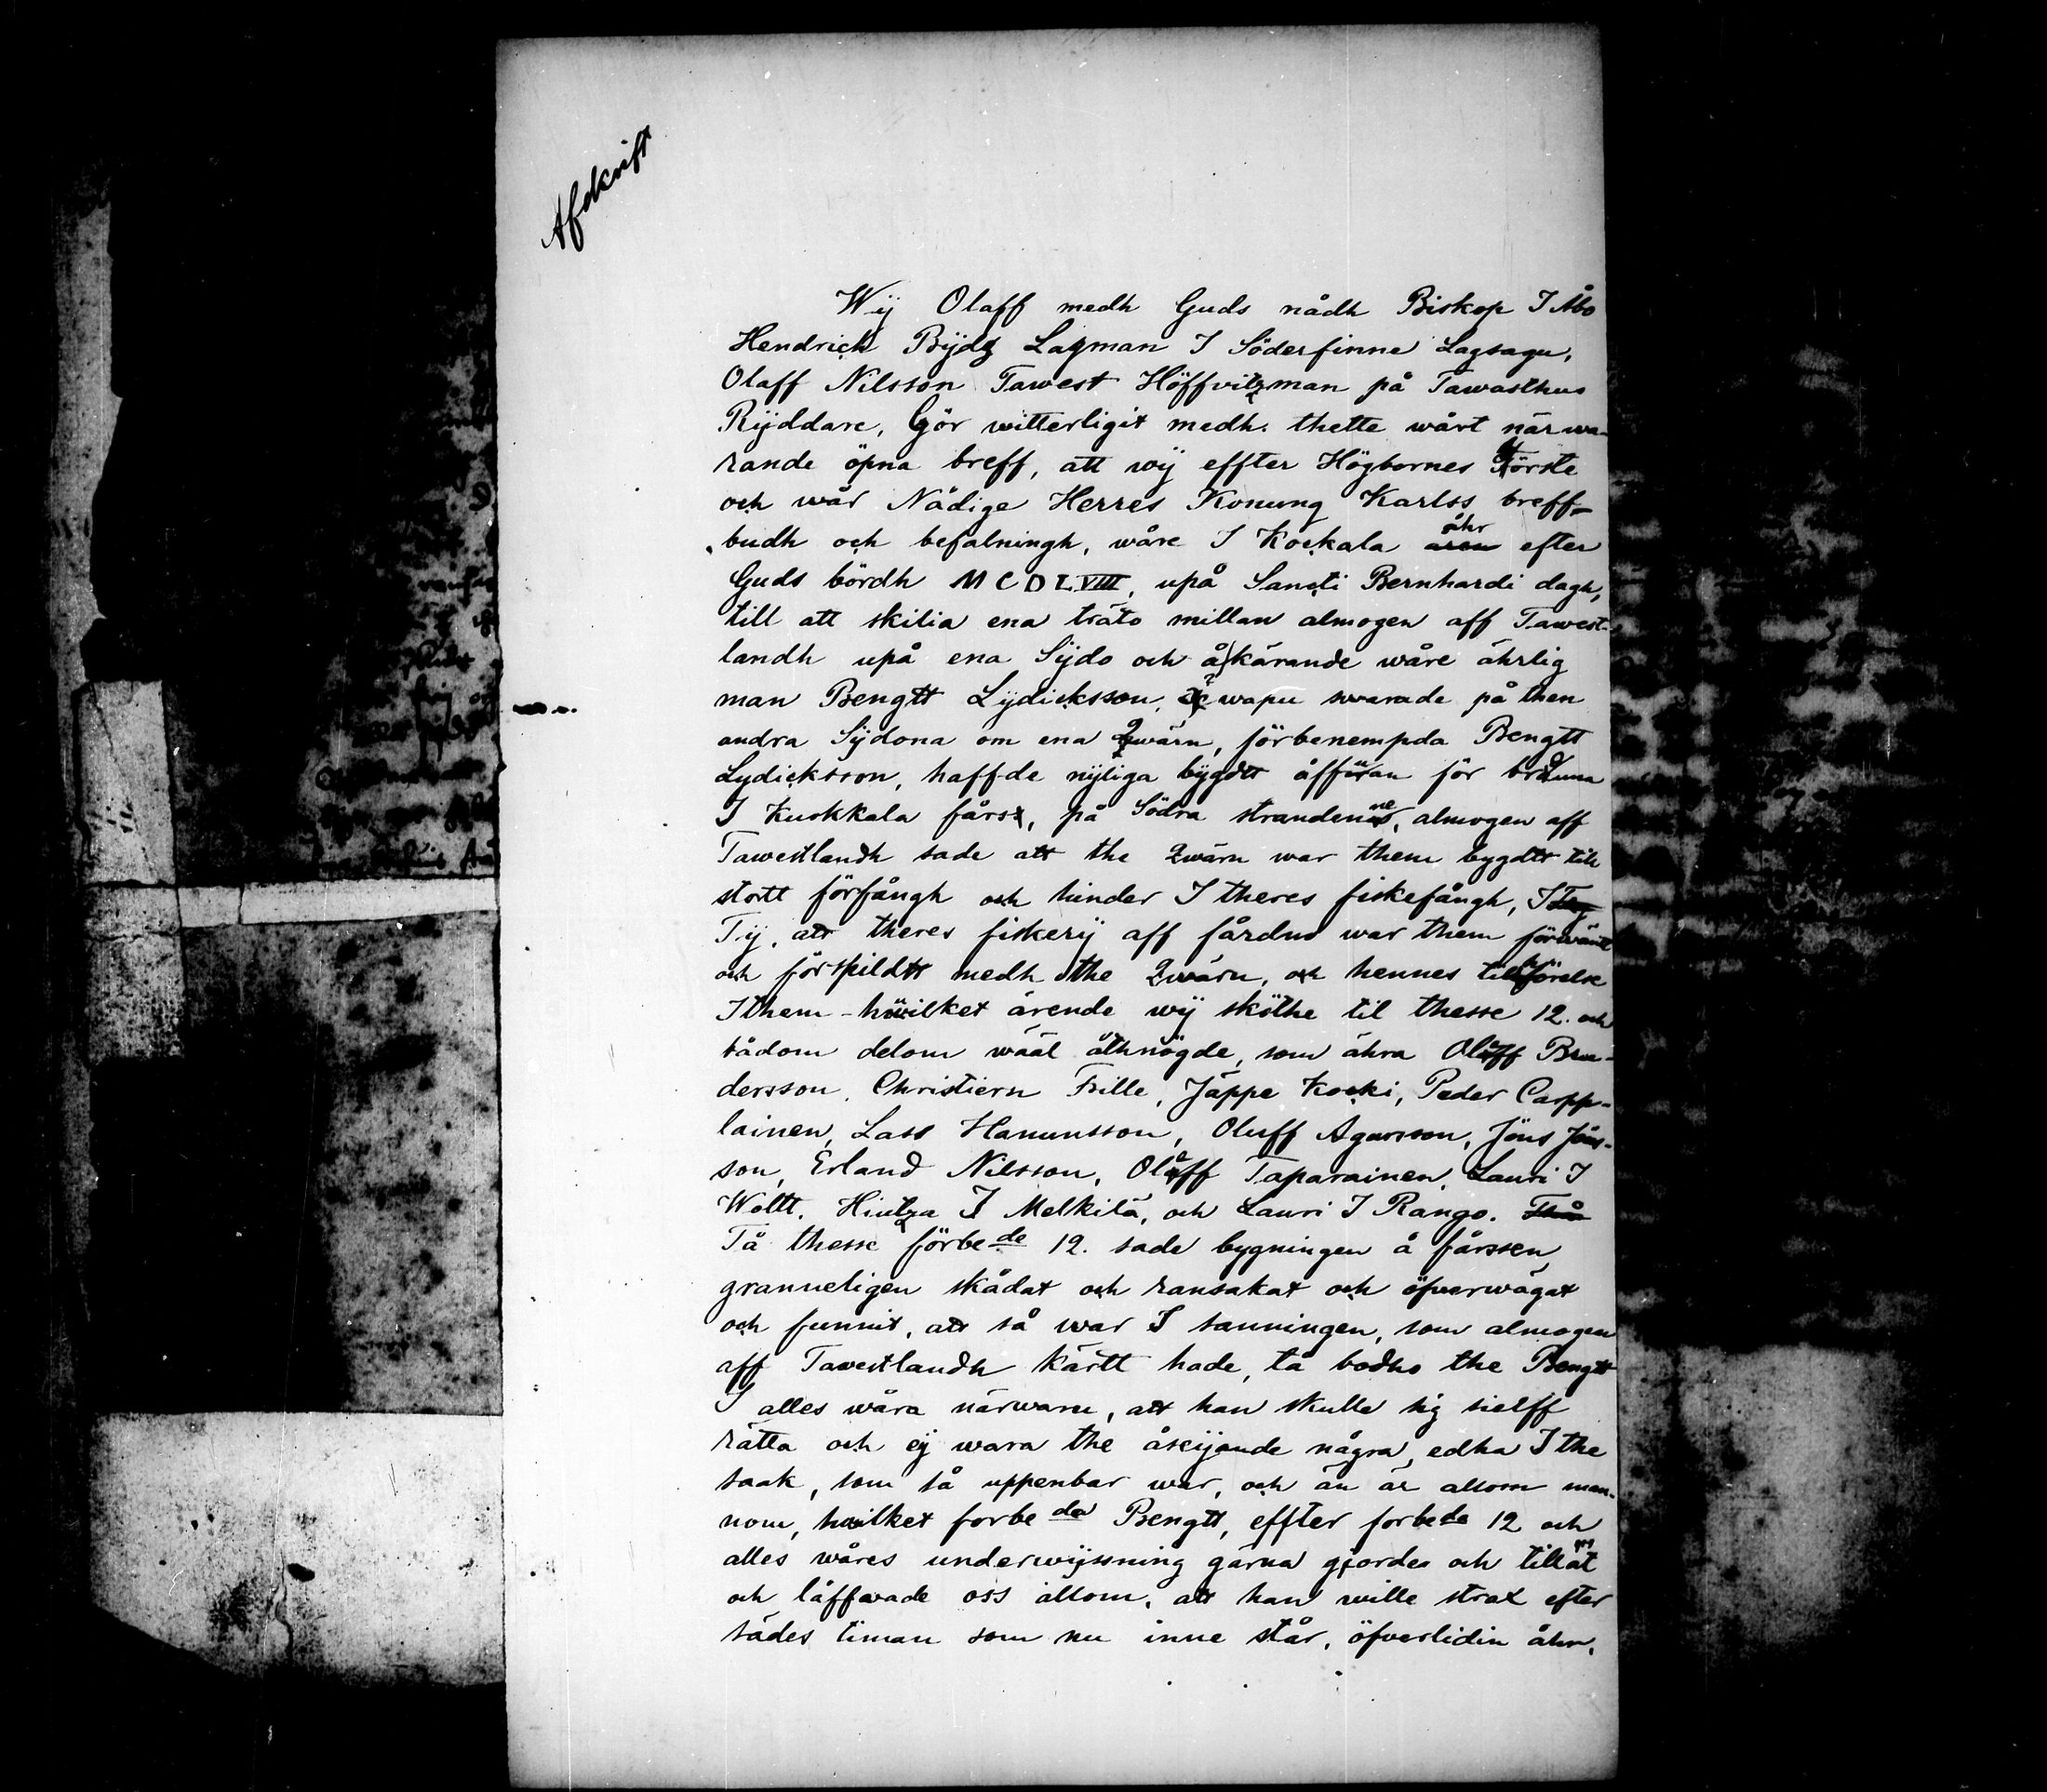 Afskrift
Wij Olaff medh Guds nådh Biskop I Åbo
Hendrich Bijdz Lagman I Söderfinne Lagsagu,
Olaff Nilsson Tawest Höffvitzman på Tawasthus
Rijddare, Gör witterligit medh thette wårt närwa-
rande öpna breff, att wij effter Högbornes Förste
och wår Nådige Herres Konung Karlss breff-
budh och befalningh, wåre I Kockala åhr efter
Guds bördh MCDLVIII, upå Sancti Bernhardi dagh,
till att skilia ena träto millan almogen aff Tawest-
landh upå ena Sijdo och åkärande wåre ährlig
man Bengtt Lydicksson, wapn swarade på then
andra Sijdona om ena Qwärn, förbenempda Bengtt
Lydicksson, haffde nyliga bygdtt åfföran för brouna
I Kuokkala fårs, på Södra strandenne, almogen aff
Tawestlandh sade att the Qwärn war them bygdtt till
stortt förfångh och hinder I theres fiskefångh, I
Tij, att theres fiskerij aff fårdno war them förwänt
och förspildtt medh the Qwärn, och hennes tilhörelse
Ithem - hwilket ärende wij sköthe til thesse 12. och
bådom delom wääl åthnögde, som ähra Olåff Bru-
dersson, Christiern Frille, Jäppe Kocki, Peder Carpp-
lainen, Lass Hanunsson, Oluff Agursson, Jöns Jöns-
son, Erland Nilsson, Olåff Taparainen, Lauri I
Woltt, Hintza I Melkilä, och Lauri I Rango.
Tå thesse förbede 12. sade bygningen å fårssen,
granneligen skådat och ransakat och öfwerwägat
och funnit, att så war I sanningen, som almogen
aff Tawestlandh kärtt hade, tå bodho the Bengtt
I alles wåra närwaru, att han skulle sig sielff
rätta och ej wara the åskijande några edha I the
saak, som så uppenbar war, och än är allom man-
nom, hwilket forbeda Bengtt, effter forbede 12 och
alles wåres underwijssning gärna gjordes och tillät
och låffwade oss allom, att han wille strax efter
sådes timan som nu inne står, öfverlidin åhr,